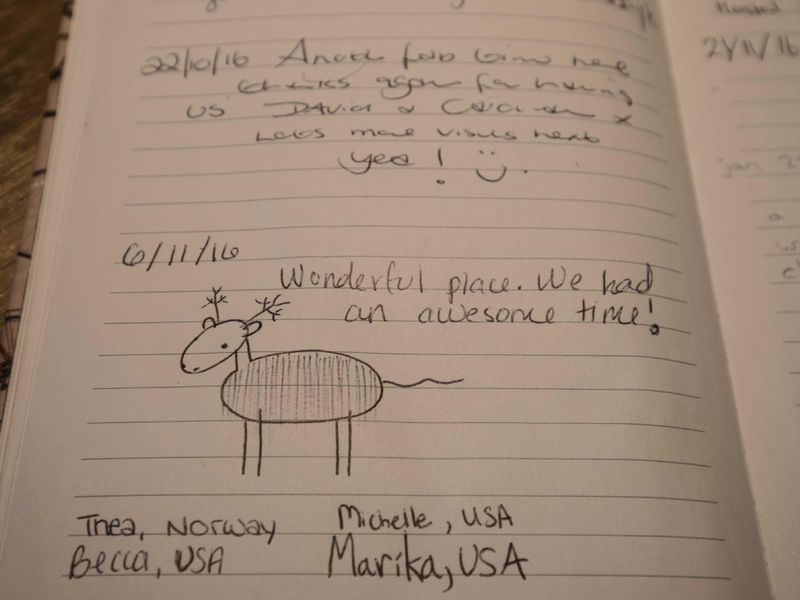 22/10/16 Another fab time here
thanks again for having
US DAVID & x
Lots more visits next
year!
6/11/16
Wonderful place. We had
an awesome time!
Thea, NORWAY
Michelle, USA
Becca, USA
Marika, USA
21/11/16